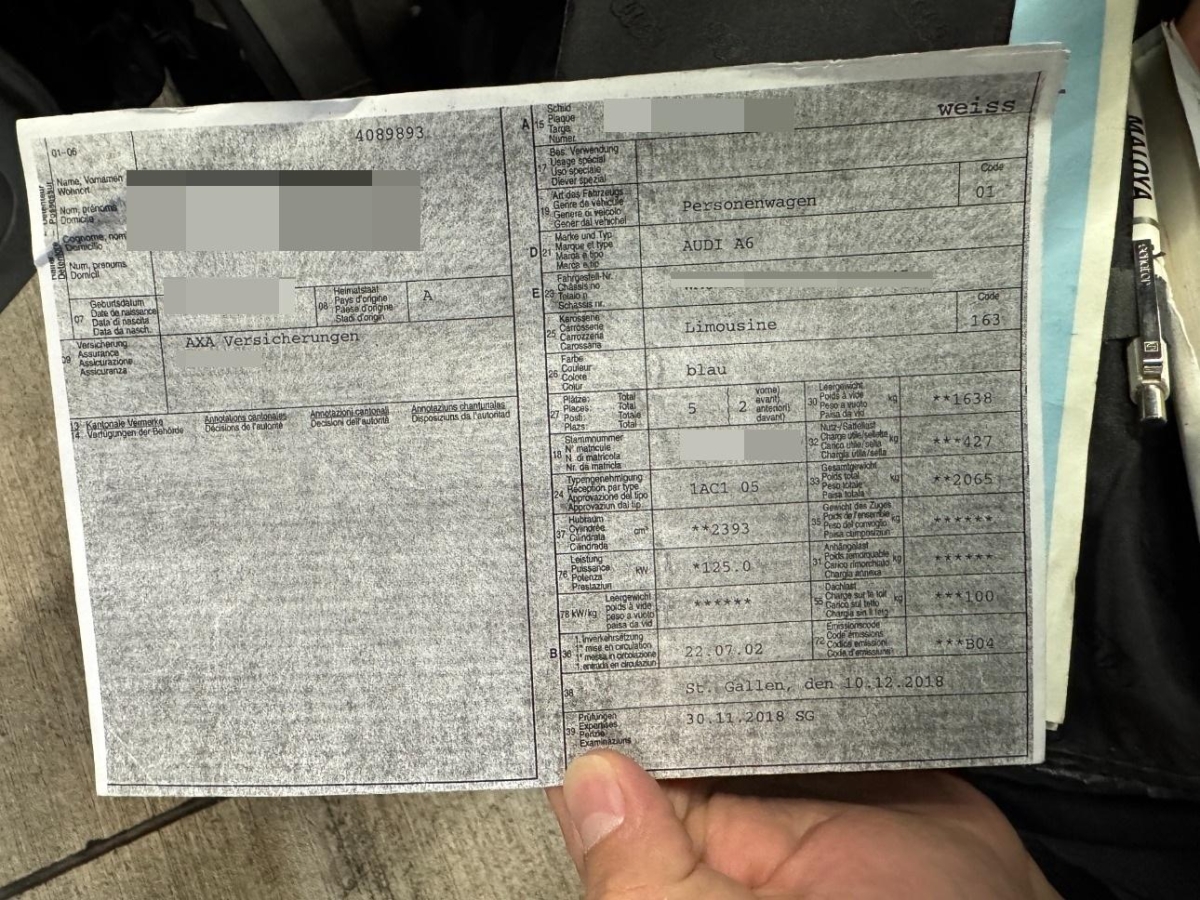 4089893
01-06
Name, Vornamen
Wohnort
Nom, prénoms
Domicile
Cognome, nomi
Domicilio
Num, prenums
Domicil
07
Geburtsdatum
Date de naissance
Data di nascita
Data da nasch.
08
Heimatstaat
Pays d'origine
Paese d'origine
Stadi d'origin
A
09
Versicherung
Assurance
Assicurazione
Assicuranza
AXA Versicherungen
13
14
Kantonale Vermerke
Verfügungen der Behörde
Annotations cantonales
Décisions de l'autorité
Annotazioni cantonali
Decisioni dell'autorità
Annotaziuns chantunalas
Disposiziuns da l'autoritad
A
15
Schild
Plaque
Targa
Numer
weiss
17
Bes. Verwendung
Usage spécial
Uso speciale
Diever spezial
19
Art des Fahrzeugs
Genre de véhicule
Genere di veicolo
Gener dal vehichel
Personenwagen
Code
01
D
21
Marke und Typ
Marque et type
Marca e tipo
Marca e tip
AUDI A6
E
23
Fahrgestell-Nr.
Châssis no
Telaio n.
Schassis nr.
25
Karosserie
Carrosserie
Carrozzeria
Carossaria
Limousine
Code
163
26
Farbe
Couleur
Colore
Colur
blau
27
Plätze: Total
Places: Total
Posti: Totale
Plazs: Total
5
2
vorne)
avant)
anteriori)
davant)
30
Leergewicht
Poids à vide
Peso a vuoto
Paisa da vid
kg
**1638
18
Stammnummer
N° matricule
N. di matricola
Nr. da matricla
32
Nutz-/Sattellast
Charge utile/sellette
Carico utile/sella
Chargia utila/sella
kg
***427
24
Typengenehmigung
Réception par type
Approvazione del tipo
Approvaziun dal tip
1AC1 05
33
Gesamtgewicht
Poids total
Peso totale
Paisa totala
kg
**2065
37
Hubraum
Cylindrée
Cilindrata
Cilindrada
cm³
**2393
35
Gewicht des Zuges
Poids de l'ensemble
Peso del convoglio
Paisa cumposiziun
kg
******
76
Leistung
Puissance
Potenza
Prestaziun
kW
*125.0
31
Anhängelast
Poids remorquable
Carico rimorchiato
Chargia annexa
kg
******
78 kW/kg
Leergewicht
poids à vide
peso a vuoto
paisa da vid
******
55
Dachlast
Charge sur le toit
Carico sul tetto
Chargia sin il tetg
kg
***100
B
36
1. Inverkehrsetzung
1re mise en circulation
1a messa in circolazione
1. entrada en circulaziun
22.07.02
72
Emissionscode
Code émissions
Codice emissioni
Code d'emissiuns
***B04
38
St. Gallen, den 10.12.2018
39
Prüfungen
Expertises
Perizie
Examinaziuns
30.11.2018 SG
MALOYA